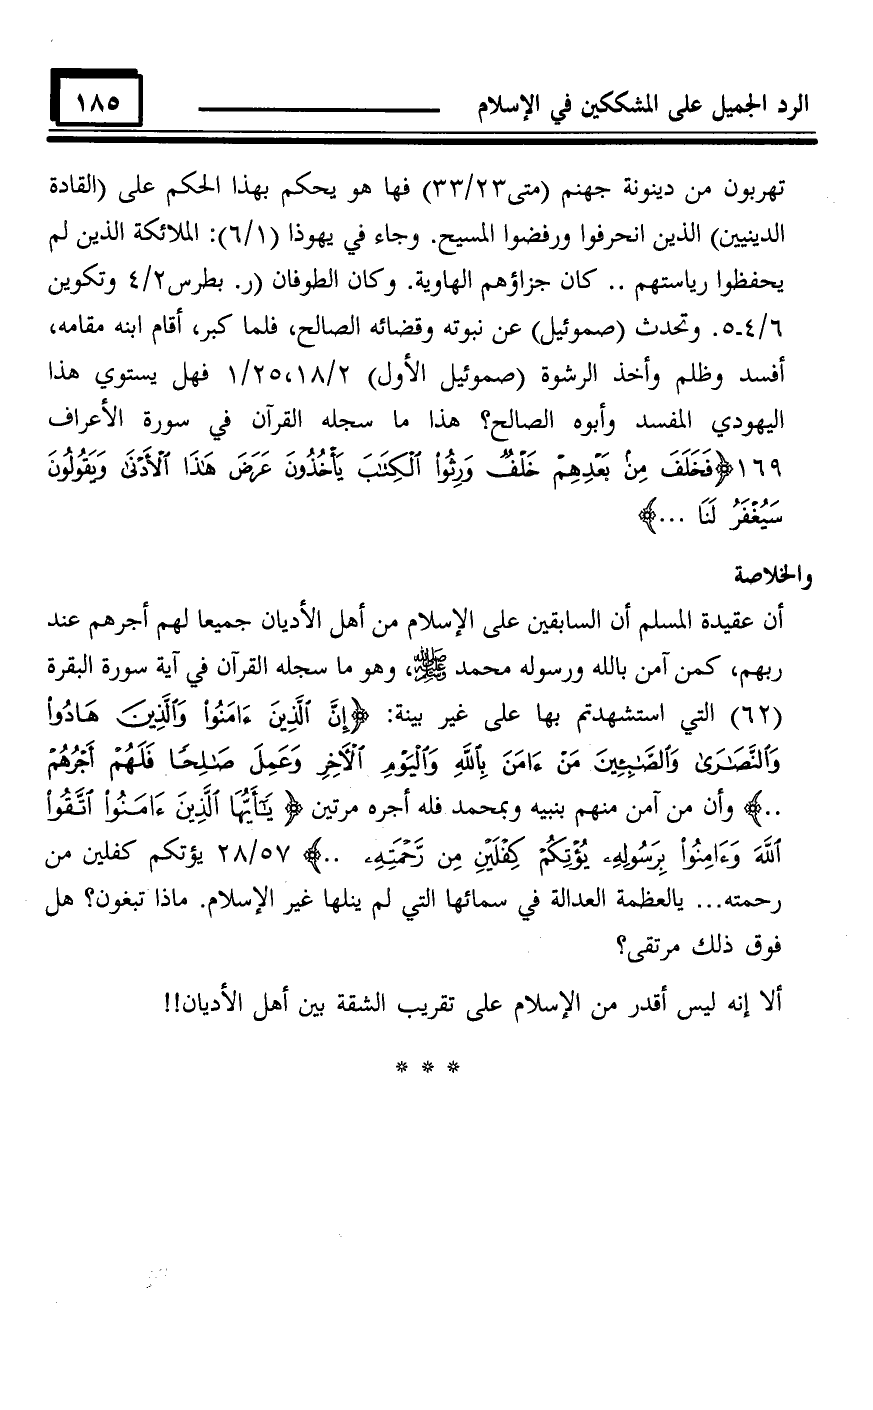 الرد الجميل على المشككين في الإسلام ١٨٥
تهربون من دينونة جهنم (متى٣٣/٢٣) فها هو يحكم بهذا الحكم على (القادة
الدينيين) الذين انحرفوا ورفضوا المسيح. وجاء في يهوذا (٦/١): الملائكة الذين لم
يحفظوا رياستهم .. كان جزاؤهم الهاوية. وكان الطوفان (ر. بطرس٤/٢ وتكوين
٤/٦-٥. وتحدث (صموئيل) عن نبوته وقضائه الصالح، فلما كبر، أقام ابنه مقامه،
أفسد وظلم وأخذ الرشوة (صموئيل الأول) ١/٢٥،١٨/٢ فهل يستوي هذا
اليهودي المفسد وأبوه الصالح؟ هذا ما سجله القرآن في سورة الأعراف
١٦٩﴿فَخَلَفَ مِنۢ بَعۡدِهِمۡ خَلۡفٞ وَرِثُواْ ٱلۡكِتَٰبَ يَأۡخُذُونَ عَرَضَ هَٰذَا ٱلۡأَدۡنَىٰ وَيَقُولُونَ
سَيُغۡفَرُ لَنَا ...﴾
والخلاصة
أن عقيدة المسلم أن السابقين على الإسلام من أهل الأديان جميعا لهم أجرهم عند
ربهم، كمن آمن بالله ورسوله محمد ﷺ، وهو ما سجله القرآن في آية سورة البقرة
(٦٢) التي استشهدتم بها على غير بينة: ﴿إِنَّ ٱلَّذِينَ ءَامَنُواْ وَٱلَّذِينَ هَادُواْ
وَٱلنَّصَٰرَىٰ وَٱلصَّٰبِـِٔينَ مَنۡ ءَامَنَ بِٱللَّهِ وَٱلۡيَوۡمِ ٱلۡأٓخِرِ وَعَمِلَ صَٰلِحٗا فَلَهُمۡ أَجۡرُهُمۡ
..﴾ وأن من آمن منهم بنبيه وبمحمد فله أجره مرتين ﴿يَٰٓأَيُّهَا ٱلَّذِينَ ءَامَنُواْ ٱتَّقُواْ
ٱللَّهَ وَءَامِنُواْ بِرَسُولِهِۦ يُؤۡتِكُمۡ كِفۡلَيۡنِ مِن رَّحۡمَتِهِۦ ..﴾ ٢٨/٥٧ يؤتكم كفلين من
رحمته... يالعظمة العدالة في سمائها التي لم ينلها غير الإسلام. ماذا تبغون؟ هل
فوق ذلك مرتقى؟
ألا إنه ليس أقدر من الإسلام على تقريب الشقة بين أهل الأديان!!
* * *